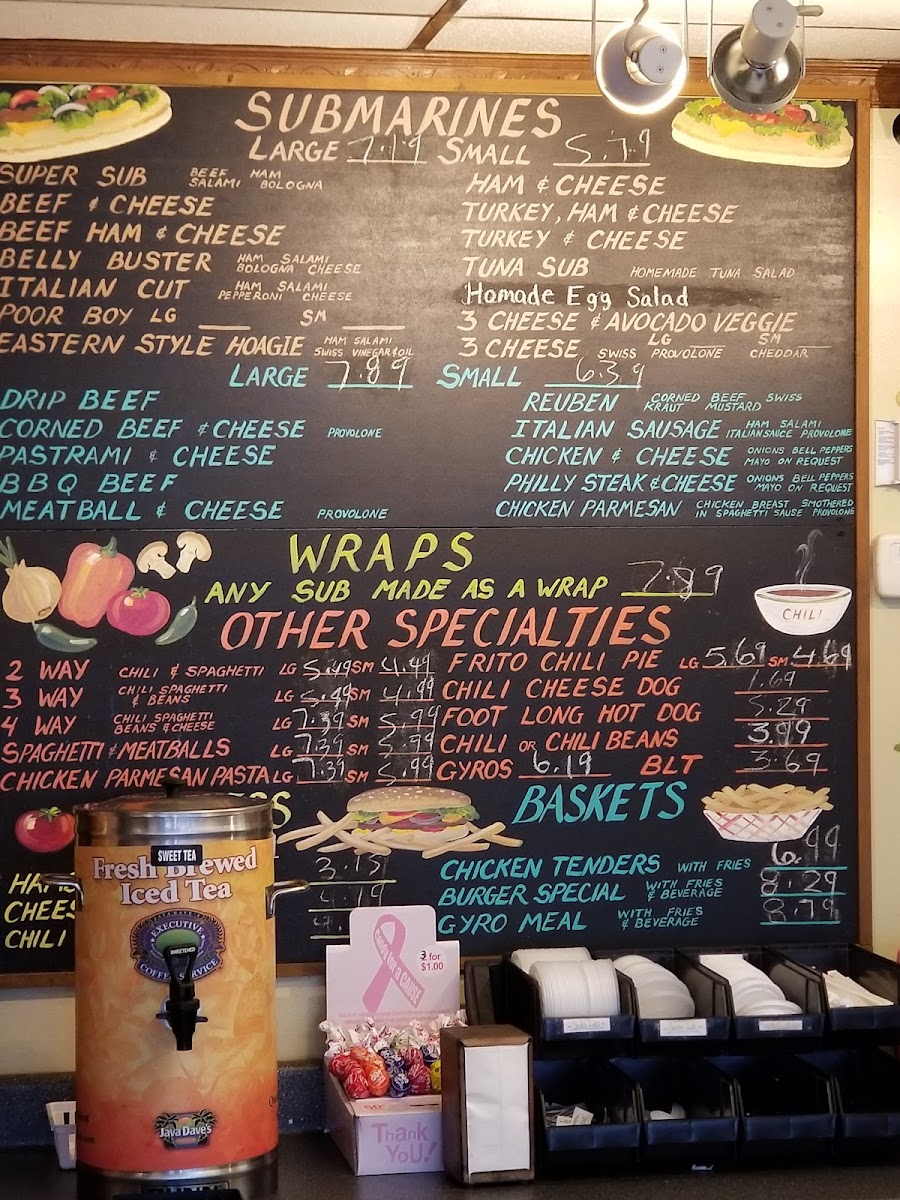 SUBMARINES
LARGE 7.19 SMALL 5.79
SUPER SUB BEEF HAM SALAMI BOLOGNA
BEEF & CHEESE
BEEF HAM & CHEESE
BELLY BUSTER HAM SALAMI BOLOGNA CHEESE
ITALIAN CUT HAM SALAMI PEPPERONI CHEESE
POOR BOY LG SM
EASTERN STYLE HOAGIE HAM SALAMI SWISS VINEGAR & OIL
HAM & CHEESE
TURKEY, HAM & CHEESE
TURKEY & CHEESE
TUNA SUB HOMEMADE TUNA SALAD
Homade Egg Salad
3 CHEESE & AVOCADO VEGGIE
LG SM
3 CHEESE SWISS PROVOLONE CHEDDAR
LARGE 7.89 SMALL 6.39
DRIP BEEF
CORNED BEEF & CHEESE PROVOLONE
PASTRAMI & CHEESE
BBQ BEEF
MEATBALL & CHEESE PROVOLONE
REUBEN CORNED BEEF SWISS KRAUT MUSTARD
ITALIAN SAUSAGE HAM SALAMI ITALIAN SAUCE PROVOLONE
CHICKEN & CHEESE ONIONS BELL PEPPERS MAYO ON REQUEST
PHILLY STEAK & CHEESE ONIONS BELL PEPPERS MAYO ON REQUEST
CHICKEN PARMESAN CHICKEN BREAST SMOTHERED IN SPAGHETTI SAUSE PROVOLONE
WRAPS
ANY SUB MADE AS A WRAP 7.89
CHILI
OTHER SPECIALTIES
2 WAY CHILI & SPAGHETTI LG 5.49 SM 4.49
3 WAY CHILI SPAGHETTI & BEANS LG 5.49 SM 4.99
4 WAY CHILI SPAGHETTI BEANS & CHEESE LG 7.39 SM 5.99
SPAGHETTI & MEATBALLS LG 7.39 SM 5.99
CHICKEN PARMESAN PASTA LG 7.39 SM 5.99
FRITO CHILI PIE LG 5.69 SM 4.69
CHILI CHEESE DOG 1.69
FOOT LONG HOT DOG 5.29
CHILI OR CHILI BEANS 3.99
GYROS 6.19 BLT 3.69
3.15
4.19
CHEES
CHILI
BASKETS
CHICKEN TENDERS WITH FRIES 6.99
BURGER SPECIAL WITH FRIES & BEVERAGE 8.29
GYRO MEAL WITH FRIES & BEVERAGE 8.79
SWEET TEA
Fresh Brewed
Iced Tea
EXECUTIVE
COFFEE SERVICE
SWEETENED
Java Dave's
3 for
$1.00
Candy for a CAUSE
Thank
You!